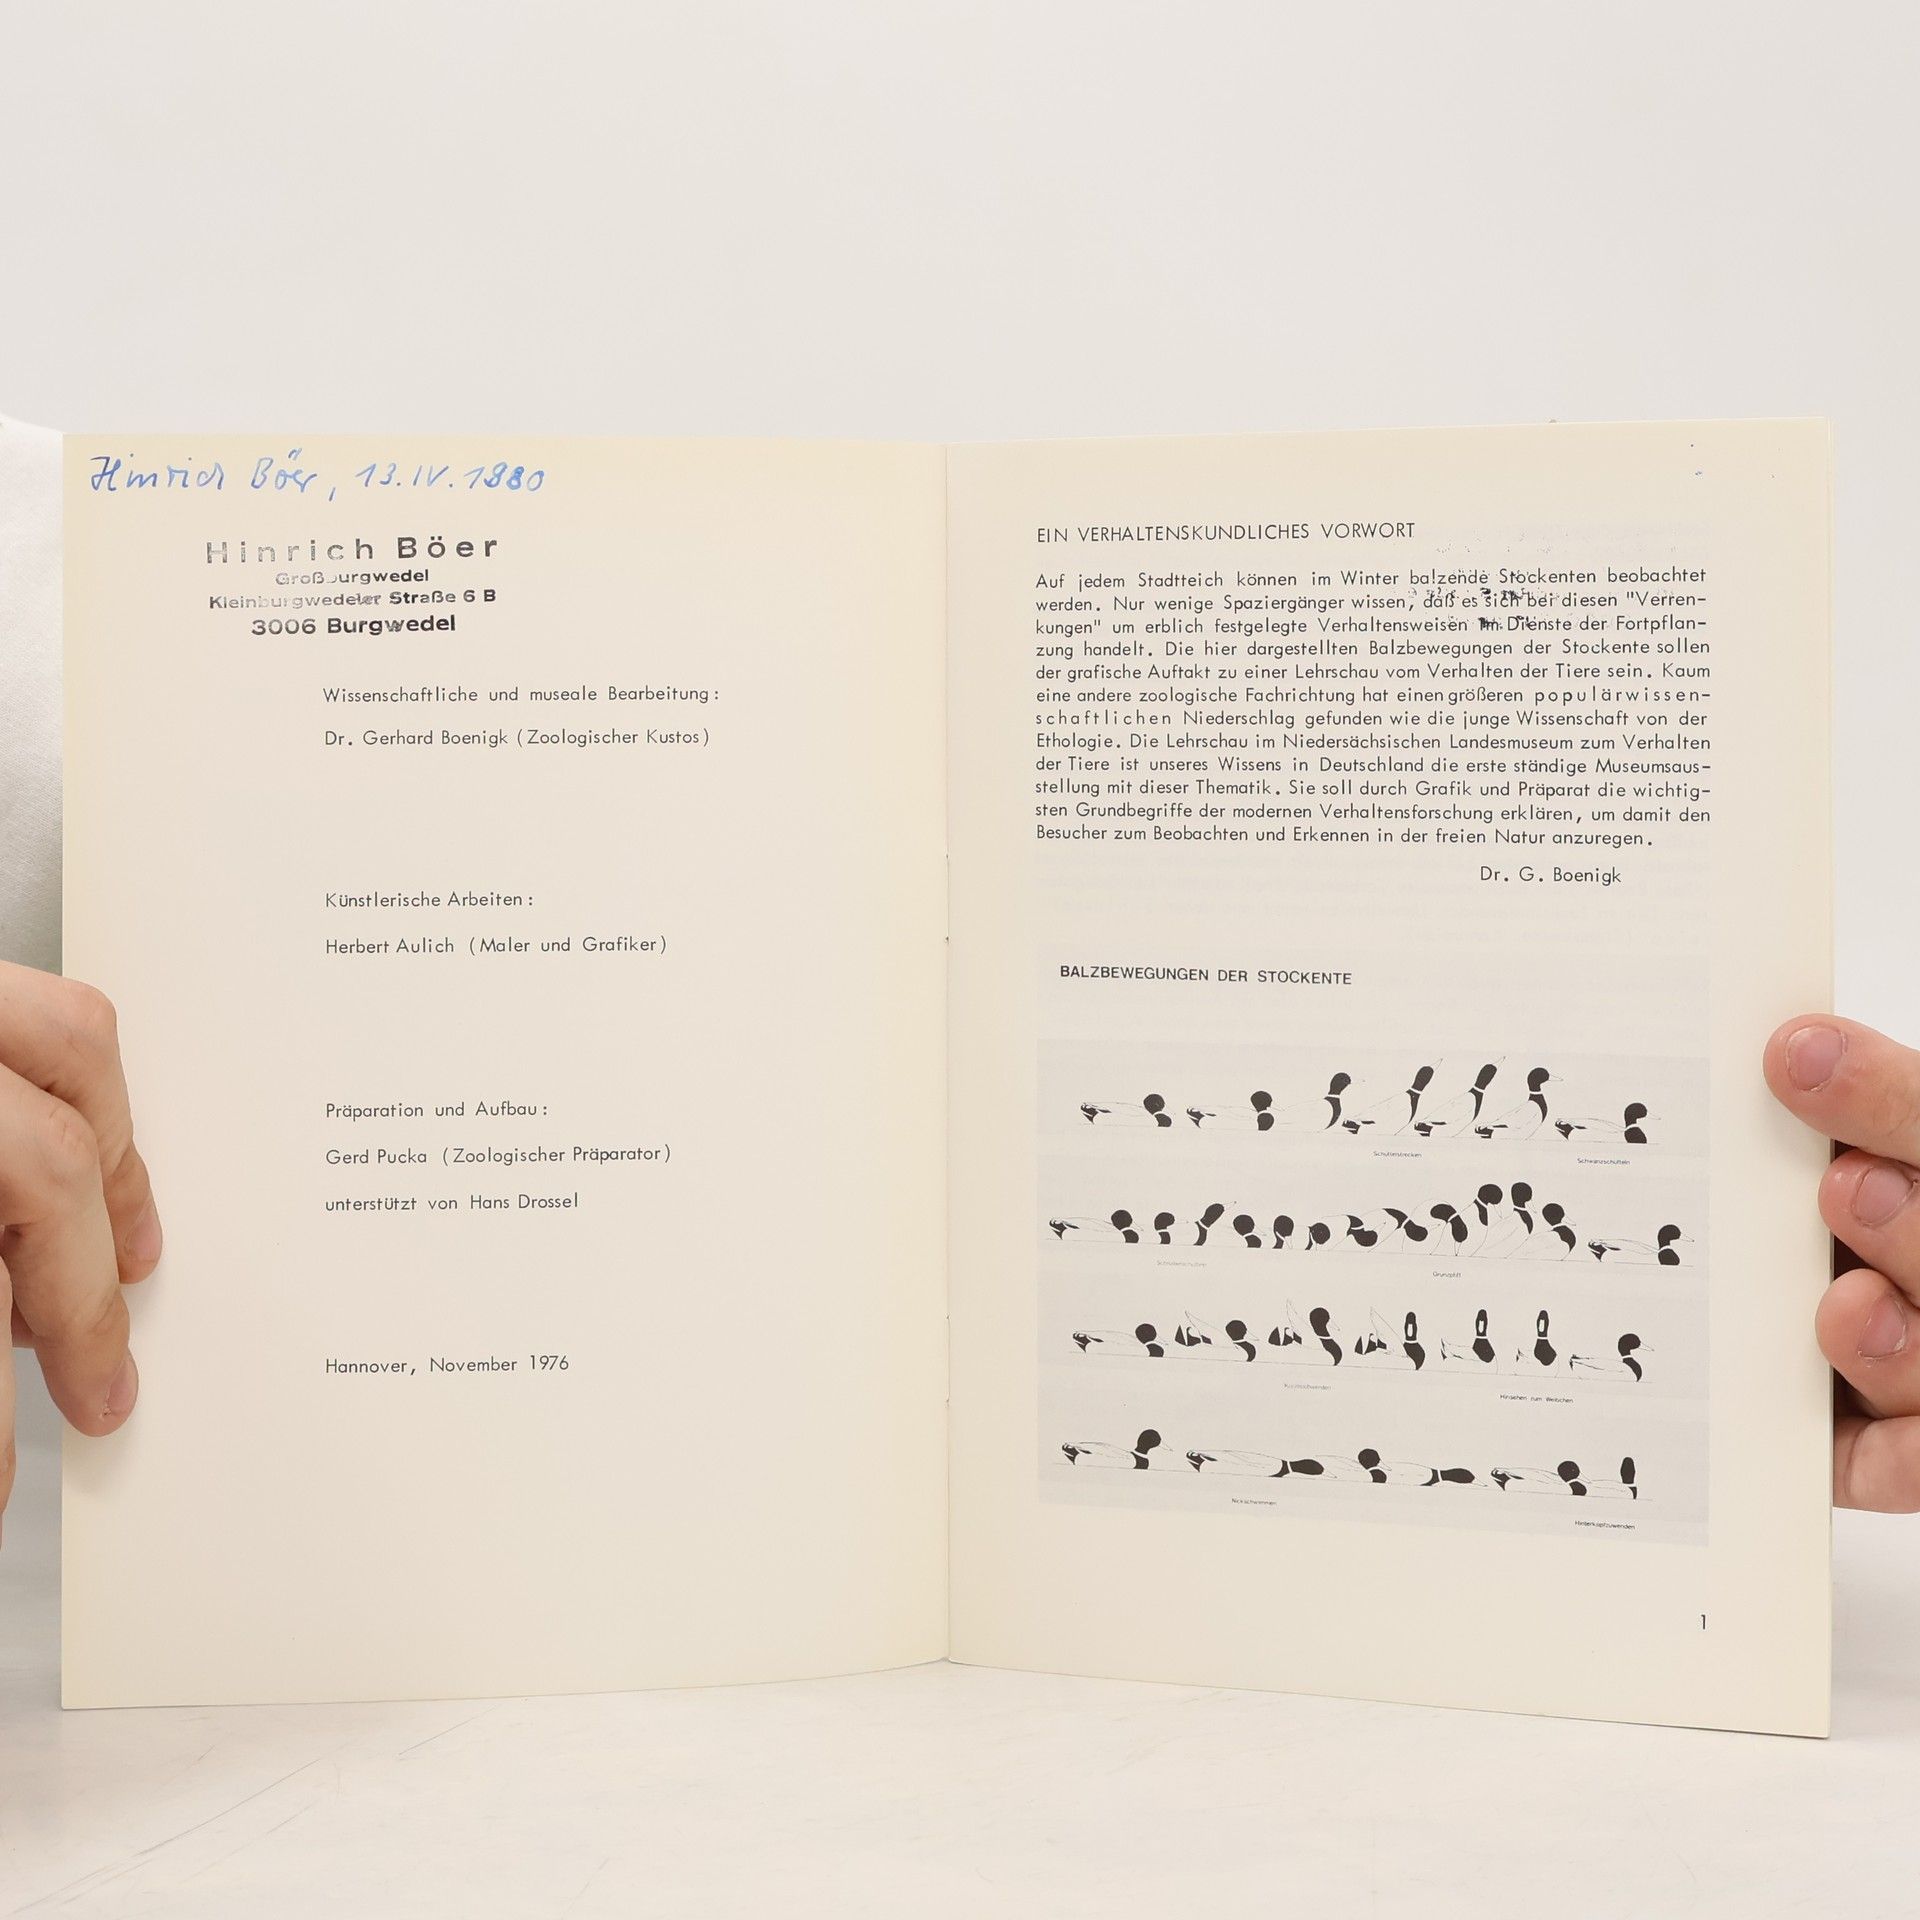 Hinrich Böer, 13.IV.1980
Hinrich Böer
Großburgwedel
Kleinburgwedeler Straße 6 B
3006 Burgwedel
Wissenschaftliche und museale Bearbeitung:
Dr. Gerhard Boenigk (Zoologischer Kustos)
Künstlerische Arbeiten:
Herbert Aulich (Maler und Grafiker)
Präparation und Aufbau:
Gerd Pucka (Zoologischer Präparator)
unterstützt von Hans Drossel
Hannover, November 1976
EIN VERHALTENSKUNDLICHES VORWORT
Auf jedem Stadtteich können im Winter balzende Stockenten beobachtet
werden. Nur wenige Spaziergänger wissen, daß es sich bei diesen "Verren-
kungen" um erblich festgelegte Verhaltensweisen im Dienste der Fortpflan-
zung handelt. Die hier dargestellten Balzbewegungen der Stockente sollen
der grafische Auftakt zu einer Lehrschau vom Verhalten der Tiere sein. Kaum
eine andere zoologische Fachrichtung hat einen größeren populärwissen-
schaftlichen Niederschlag gefunden wie die junge Wissenschaft von der
Ethologie. Die Lehrschau im Niedersächsischen Landesmuseum zum Verhalten
der Tiere ist unseres Wissens in Deutschland die erste ständige Museumsaus-
stellung mit dieser Thematik. Sie soll durch Grafik und Präparat die wichtig-
sten Grundbegriffe der modernen Verhaltensforschung erklären, um damit den
Besucher zum Beobachten und Erkennen in der freien Natur anzuregen.
Dr. G. Boenigk
BALZBEWEGUNGEN DER STOCKENTE
Schwanzschütteln
Grunzpfiff
Hinsehen zum Weibchen
Nickschwimmen
Hinterkopfzuwenden
1